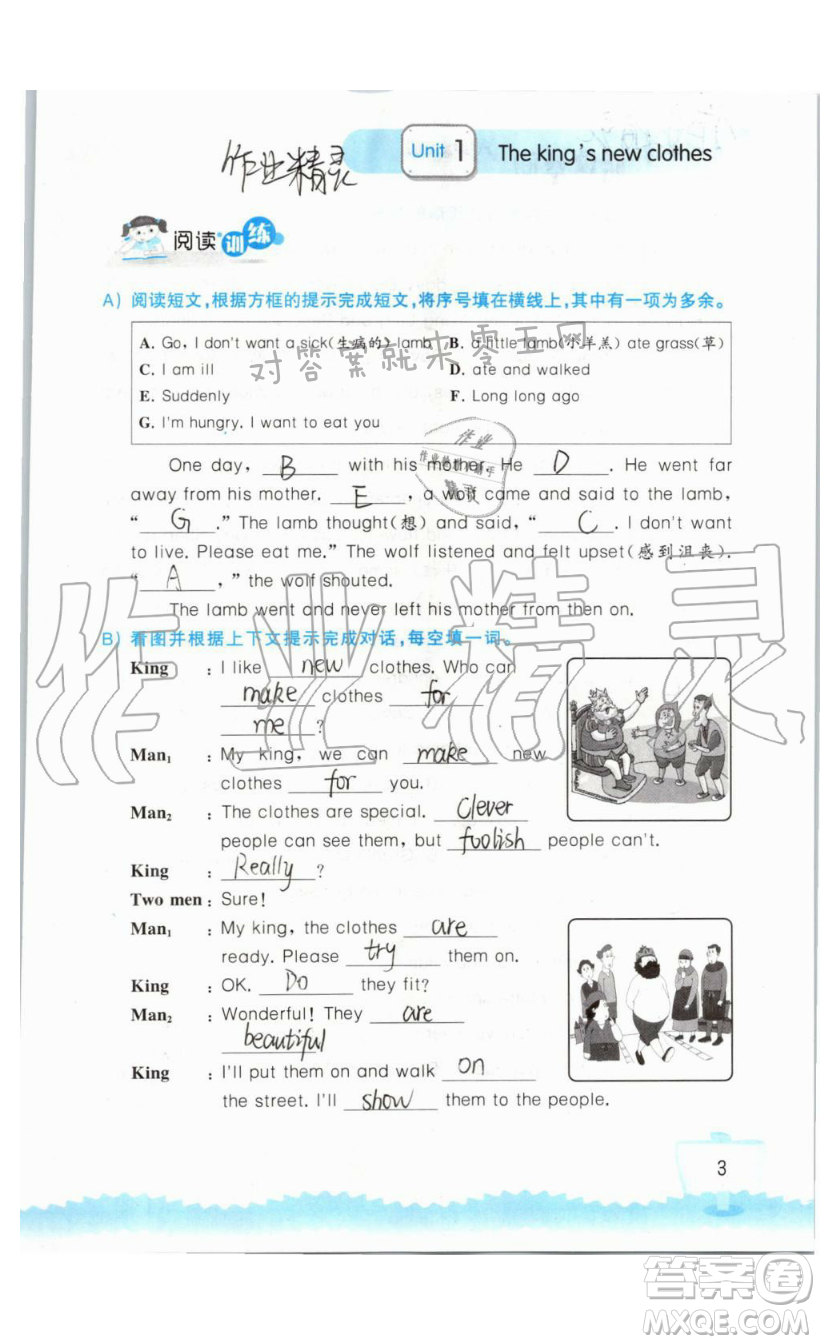 作业精灵
Unit 1 The king's new clothes
阅读训练
A) 阅读短文,根据方框的提示完成短文,将序号填在横线上,其中有一项为多余。
A. Go, I don't want a sick(生病的) lamb B. a little lamb(小羊羔) ate grass(草)
C. I am ill D. ate and walked
E. Suddenly F. Long long ago
G. I'm hungry. I want to eat you
对答案就来零五网
One day, B with his mother. He D. He went far
作业
精灵
away from his mother. E, a wolf came and said to the lamb,
“ G .” The lamb thought(想) and said, “ C . I don't want
to live. Please eat me.” The wolf listened and felt upset(感到沮丧).
“ A ,” the wolf shouted.
The lamb went and never left his mother from then on.
作业精灵
B) 看图并根据上下文提示完成对话,每空填一词。
King : I like new clothes. Who can
make clothes for
me ?
Man1 : My king, we can make new
clothes for you.
Man2 : The clothes are special. Clever
people can see them, but foolish people can't.
King : Really ?
Two men : Sure!
Man1 : My king, the clothes are
ready. Please try them on.
King : OK. Do they fit?
Man2 : Wonderful! They are
beautiful
King : I'll put them on and walk on
the street. I'll show them to the people.
3
答案卷
MXQE.COM